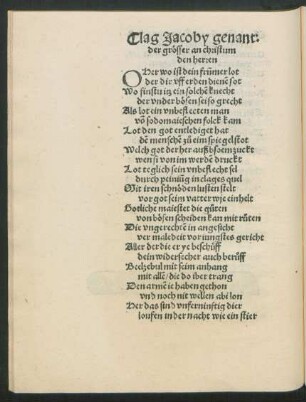 Clag Jacoby genant:
der grösser an christum
den herren
O Her wo ist dein frümer lot
der dir vff erden dienet sot
Wo finstu itz ein solchē knecht
der vnder bösen sei so grecht
Als lot ein vnbeflecten man
vō sodomaieschen folck kam
Lot den got entlediget hat
dē menschē zū eim spiegel stot
Welch got der her auß bösem zuckt
wen si von im werdē druckt
Lot teglich sein vnbeflecht sel
durch peinig in clages quel
Mit iren schnöden lusten stelt
vor got seim vatter wie einhelt
Gotliche maiestet die gūten
von bösen scheiden kan mit rūten
Die vngerechtē in angesicht
ver maledeit vor iungstes gericht
Aller der die er ye beschüff
dein widersecher auch berüff
Beelzebul mit seim anhang
mit allē die do iber trang
Den armē ie haben gethon
vnd noch nit wellen abi lon
Her das sind vnferninftig dier
loufen in der nacht wie ein stier